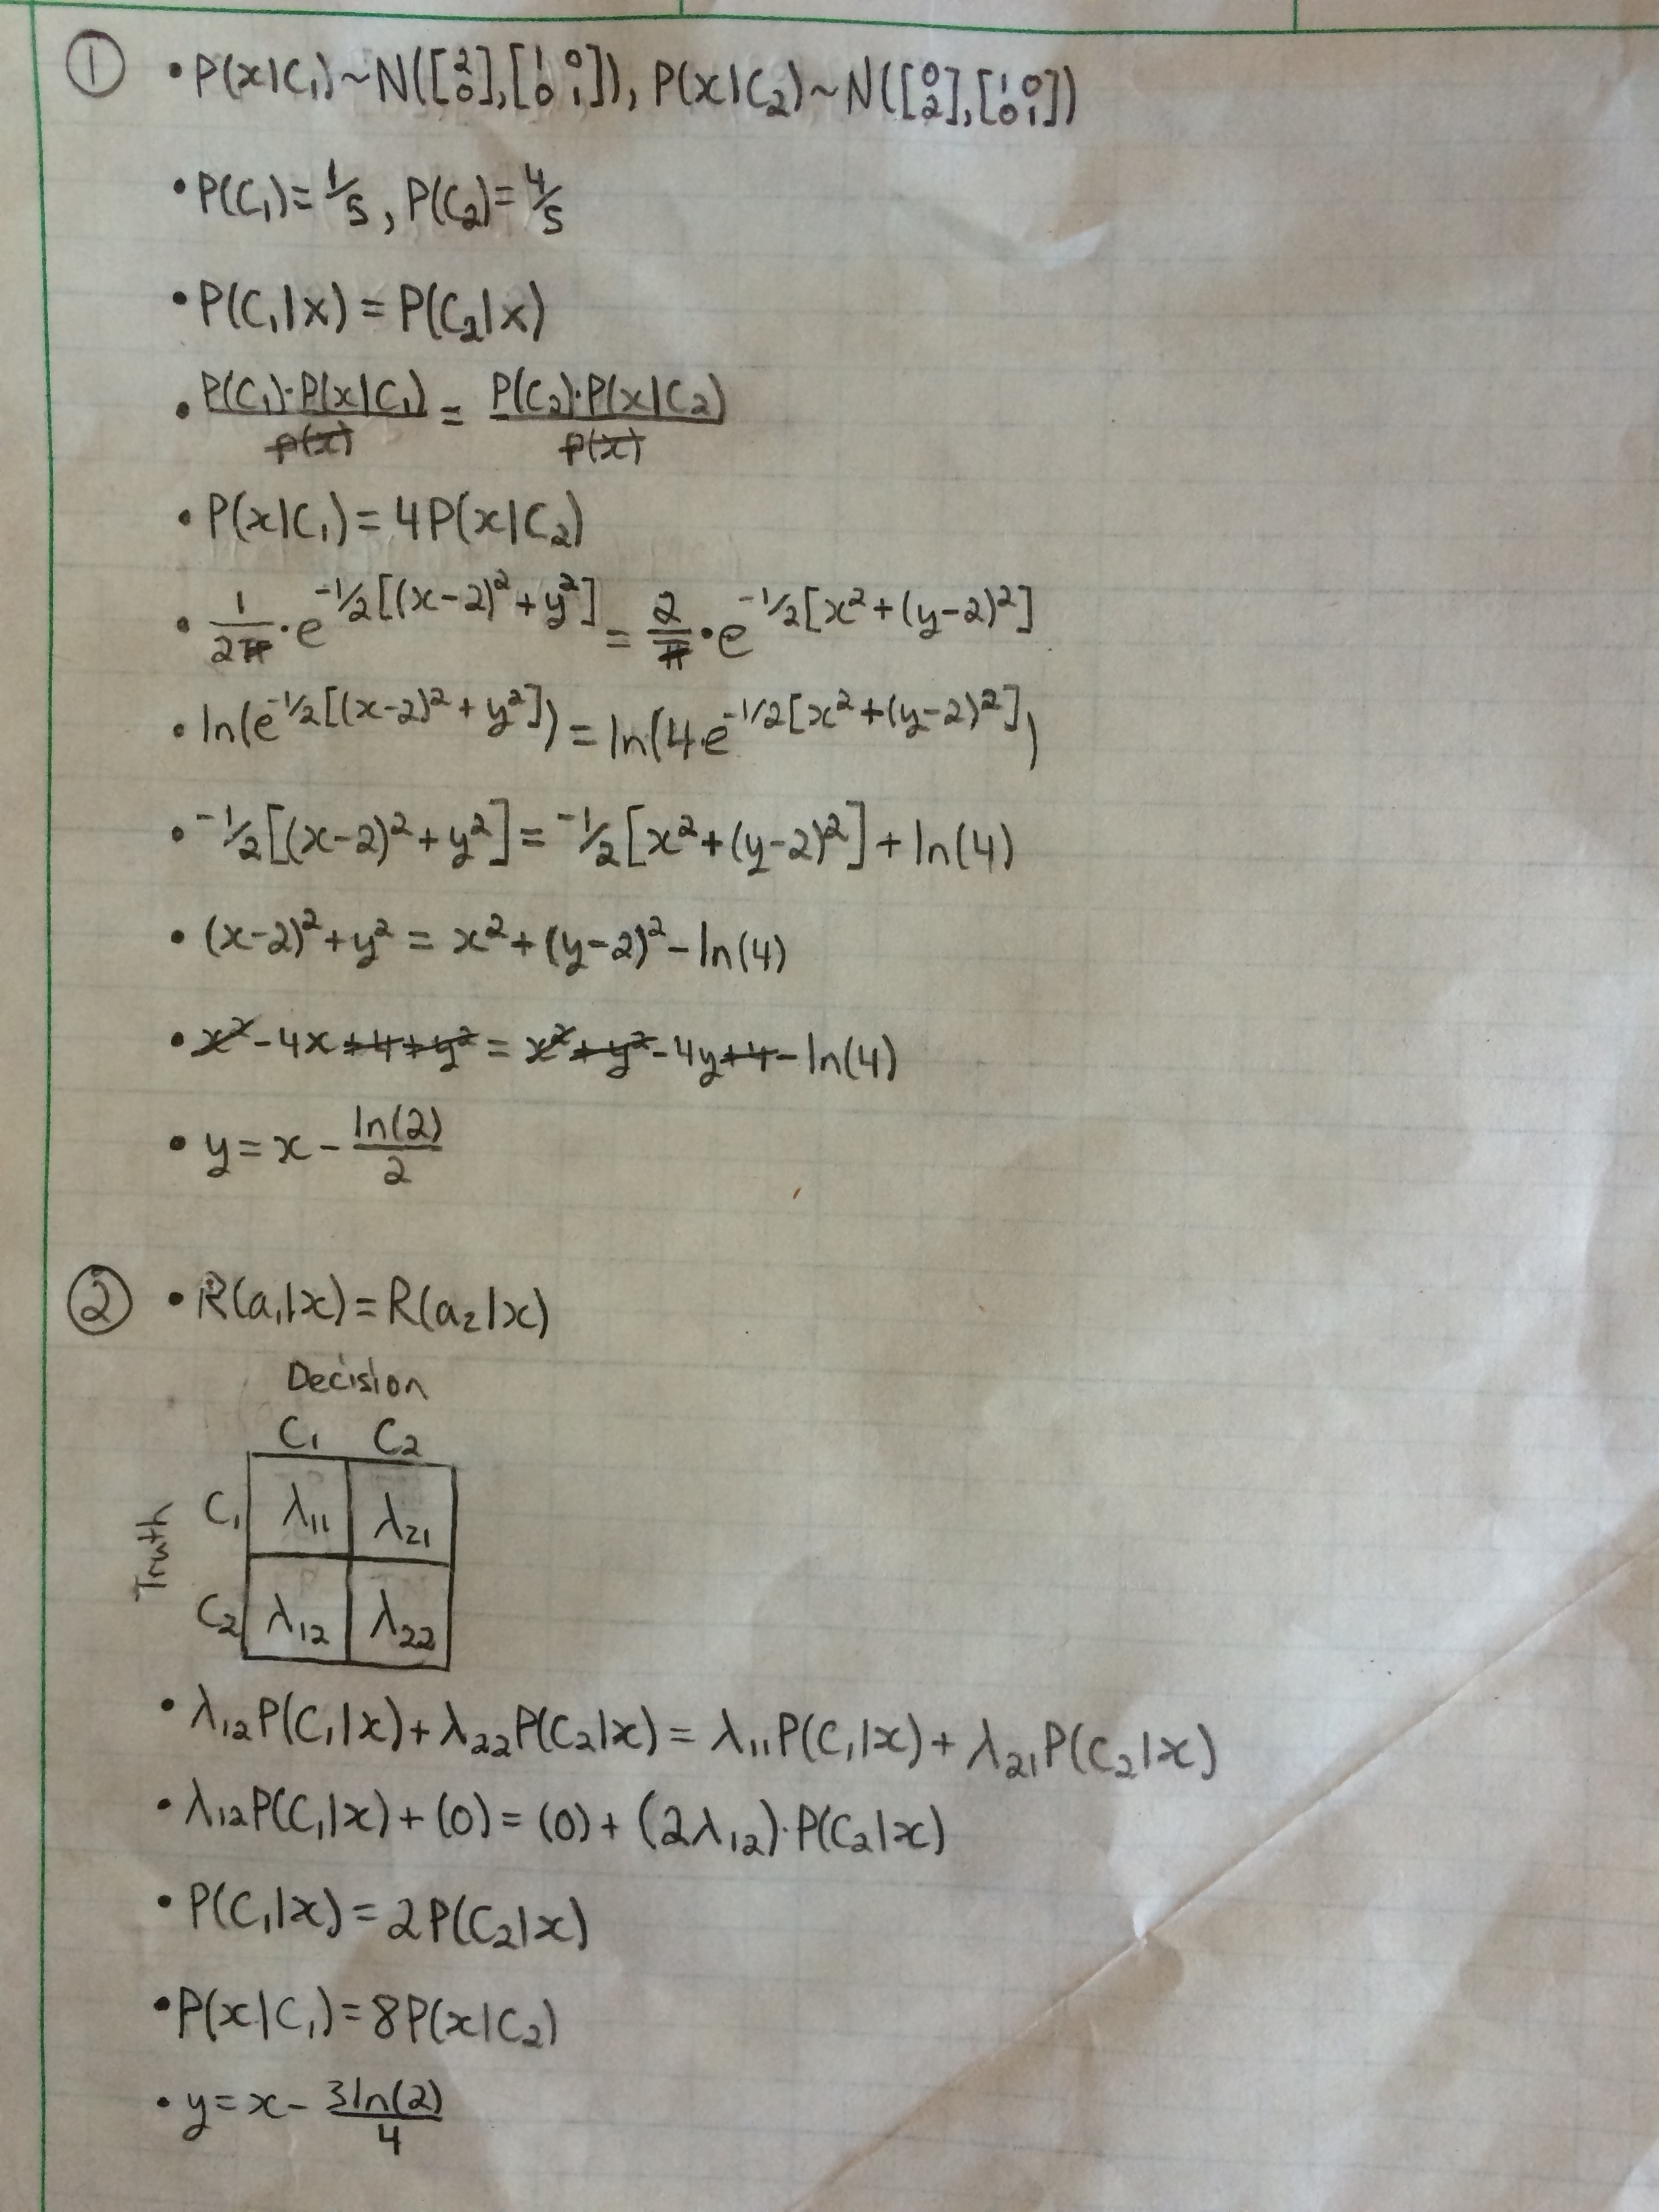 ① • P(x|C₁)~N([2 0],[1 0 0 1]), P(x|C₂)~N([0 2],[1 0 0 1])
• P(C₁)=1/5, P(C₂)=4/5
• P(C₁|x) = P(C₂|x)
• P(C₁)·P(x|C₁)/p(x) = P(C₂)·P(x|C₂)/p(x)
• P(x|C₁) = 4P(x|C₂)
• 1/2π · e^-1/2[(x-2)²+y²] = 2/π · e^-1/2[x²+(y-2)²]
• ln(e^-1/2[(x-2)²+y²]) = ln(4·e^-1/2[x²+(y-2)²])
• -1/2[(x-2)²+y²] = -1/2[x²+(y-2)²]+ln(4)
• (x-2)²+y² = x²+(y-2)²-ln(4)
• x²-4x+4+y² = x²+y²-4y+4-ln(4)
• y = x - ln(2)/2
② • R(a₁|x) = R(a₂|x)
Decision
C₁ C₂
Truth
C₁ λ₁₁ λ₂₁
C₂ λ₁₂ λ₂₂
• λ₁₂P(C₁|x)+λ₂₂P(C₂|x) = λ₁₁P(C₁|x)+λ₂₁P(C₂|x)
• λ₁₂P(C₁|x)+(0) = (0)+(2λ₁₂)·P(C₂|x)
• P(C₁|x) = 2P(C₂|x)
• P(x|C₁) = 8P(x|C₂)
• y = x - 3ln(2)/4